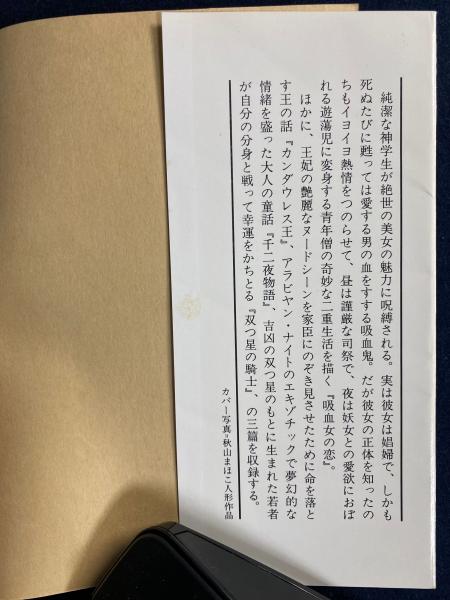 純潔な神学生が絶世の美女の魅力に呪縛される。実は彼女は娼婦で、しかも
死ぬたびに甦っては愛する男の血をすする吸血鬼。だが彼女の正体を知ったの
ちもイヨイヨ熱情をつのらせて、昼は謹厳な司祭で、夜は妖女との愛欲におぼ
れる遊蕩児に変身する青年僧の奇妙な二重生活を描く『吸血女の恋』。
ほかに、王妃の艶麗なヌードシーンを家臣にのぞき見させたために命を落と
す王の話『カンダウレス王』、アラビヤン・ナイトのエキゾチックで夢幻的な
情緒を盛った大人の童話『千二夜物語』、吉凶の双つ星のもとに生まれた若者
が自分の分身と戦って幸運をかちとる『双つ星の騎士』、の三篇を収録する。
カバー写真=秋山まほこ人形作品